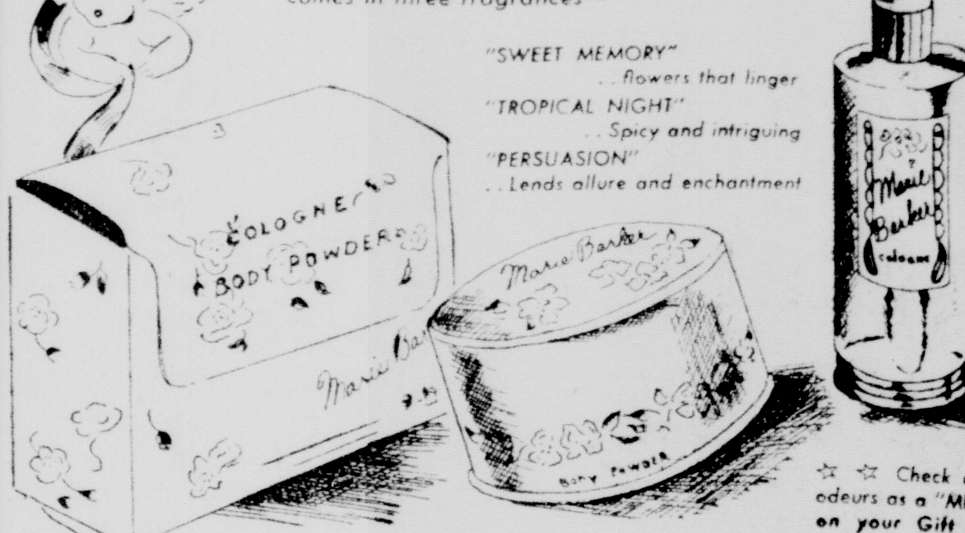 comes in three fragrances—
"SWEET MEMORY"
. . flowers that linger
"TROPICAL NIGHT"
. . Spicy and intriguing
"PERSUASION"
. . Lends allure and enchantment
COLOGNE
BODY POWDER
Marie
Marie Barker
BODY POWDER
Marie
Barker
cologne
☆ ☆ Check
odeurs as a
on your Gift